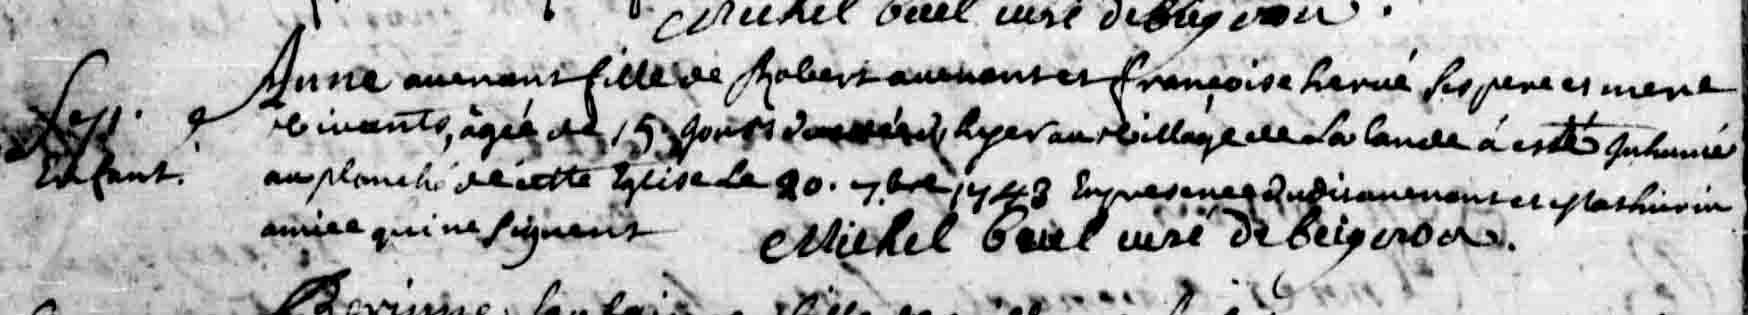 Michel bouel curé de beigeron.
Anne auenant fille de Robert auenant et françoise hervé ses pere et mere
Sep.re
vivants, agée de 15 jours hyer au village de La lande á esté Inhumé
Enfant.
au planché de cette Eglise Le 20. 7.bre 1743 En presence dudit auenant et Mathurin
amice qui ne signent
Michel bouel curé de beigeron.
fille